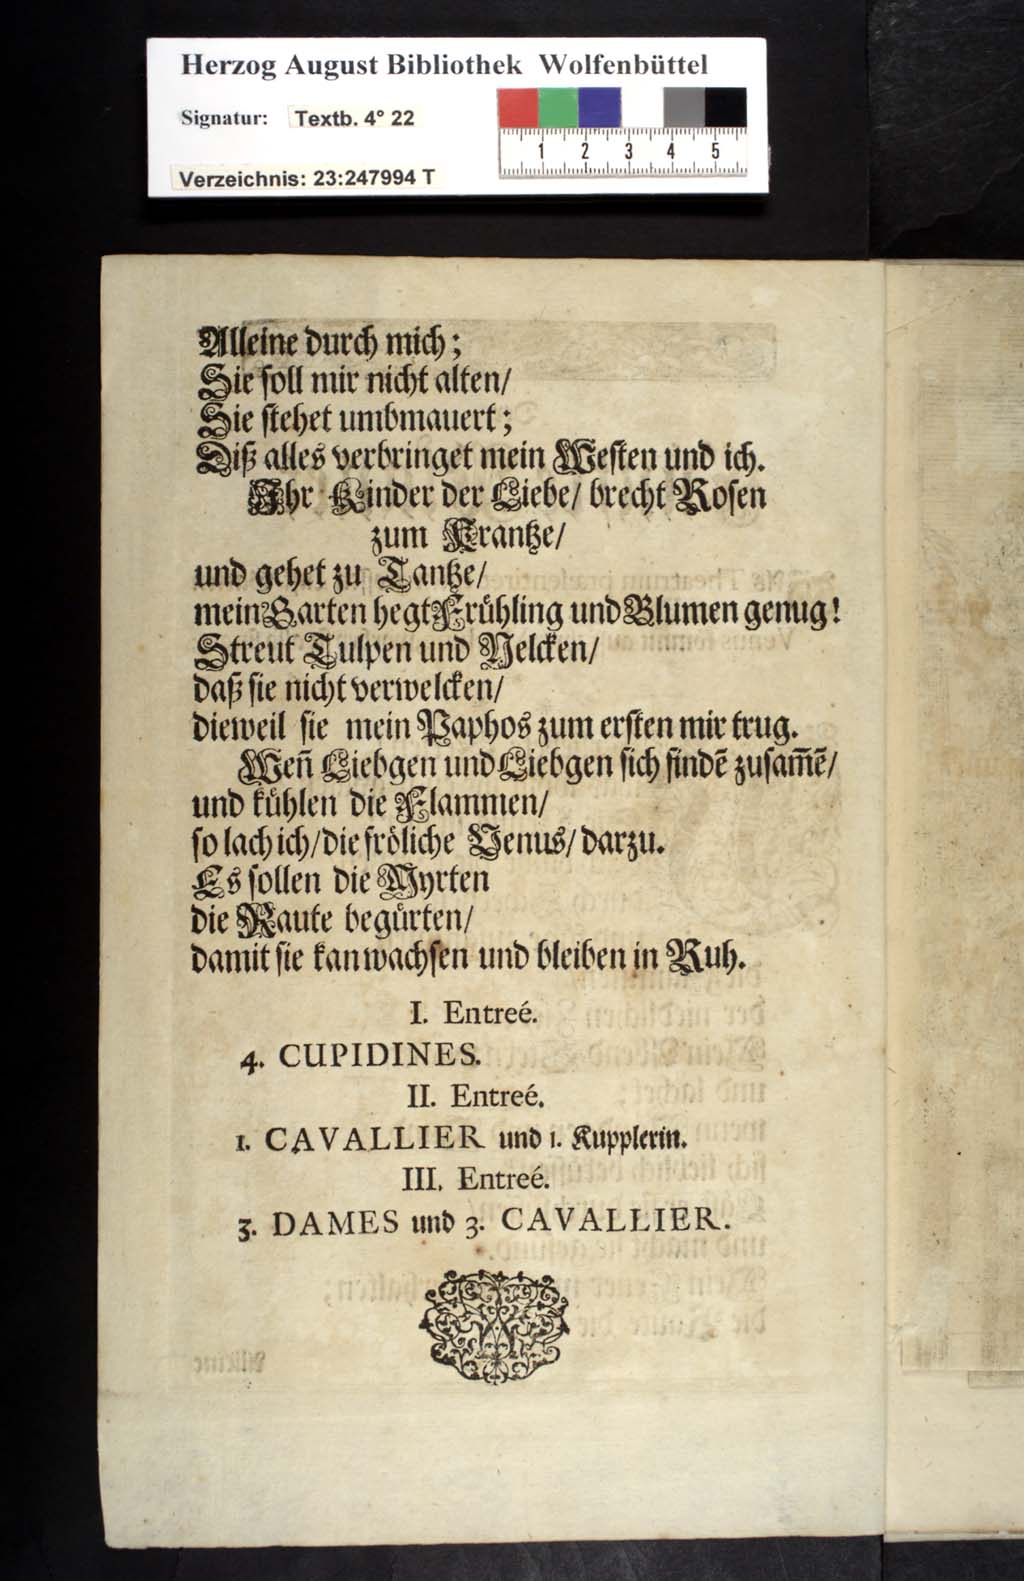 Herzog August Bibliothek Wolfenbüttel
Signatur: Textb. 4° 22
1 2 3 4 5
Verzeichnis: 23:247994 T
Alleine durch mich;
Sie soll mir nicht alten/
Sie stehet umbmauert;
Diß alles verbringet mein Westen und ich.
Ihr Kinder der Liebe/ brecht Rosen
zum Krantze/
und gehet zu Tantze/
mein Garten hegt Frühling und Blumen genug!
Streut Tulpen und Nelcken/
daß sie nicht verwelcken/
dieweil sie mein Paphos zum ersten mir trug.
Weñ Liebgen und Liebgen sich findẽ zusam̃ẽ/
und kühlen die Flammen/
so lach ich/ die fröliche Venus/ darzu.
Es sollen die Myrten
die Raute begürten/
damit sie kan wachsen und bleiben in Ruh.
I. Entreé.
4. CUPIDINES.
II. Entreé.
1. CAVALLIER und 1. Kupplerin.
III. Entreé.
3. DAMES und 3. CAVALLIER.